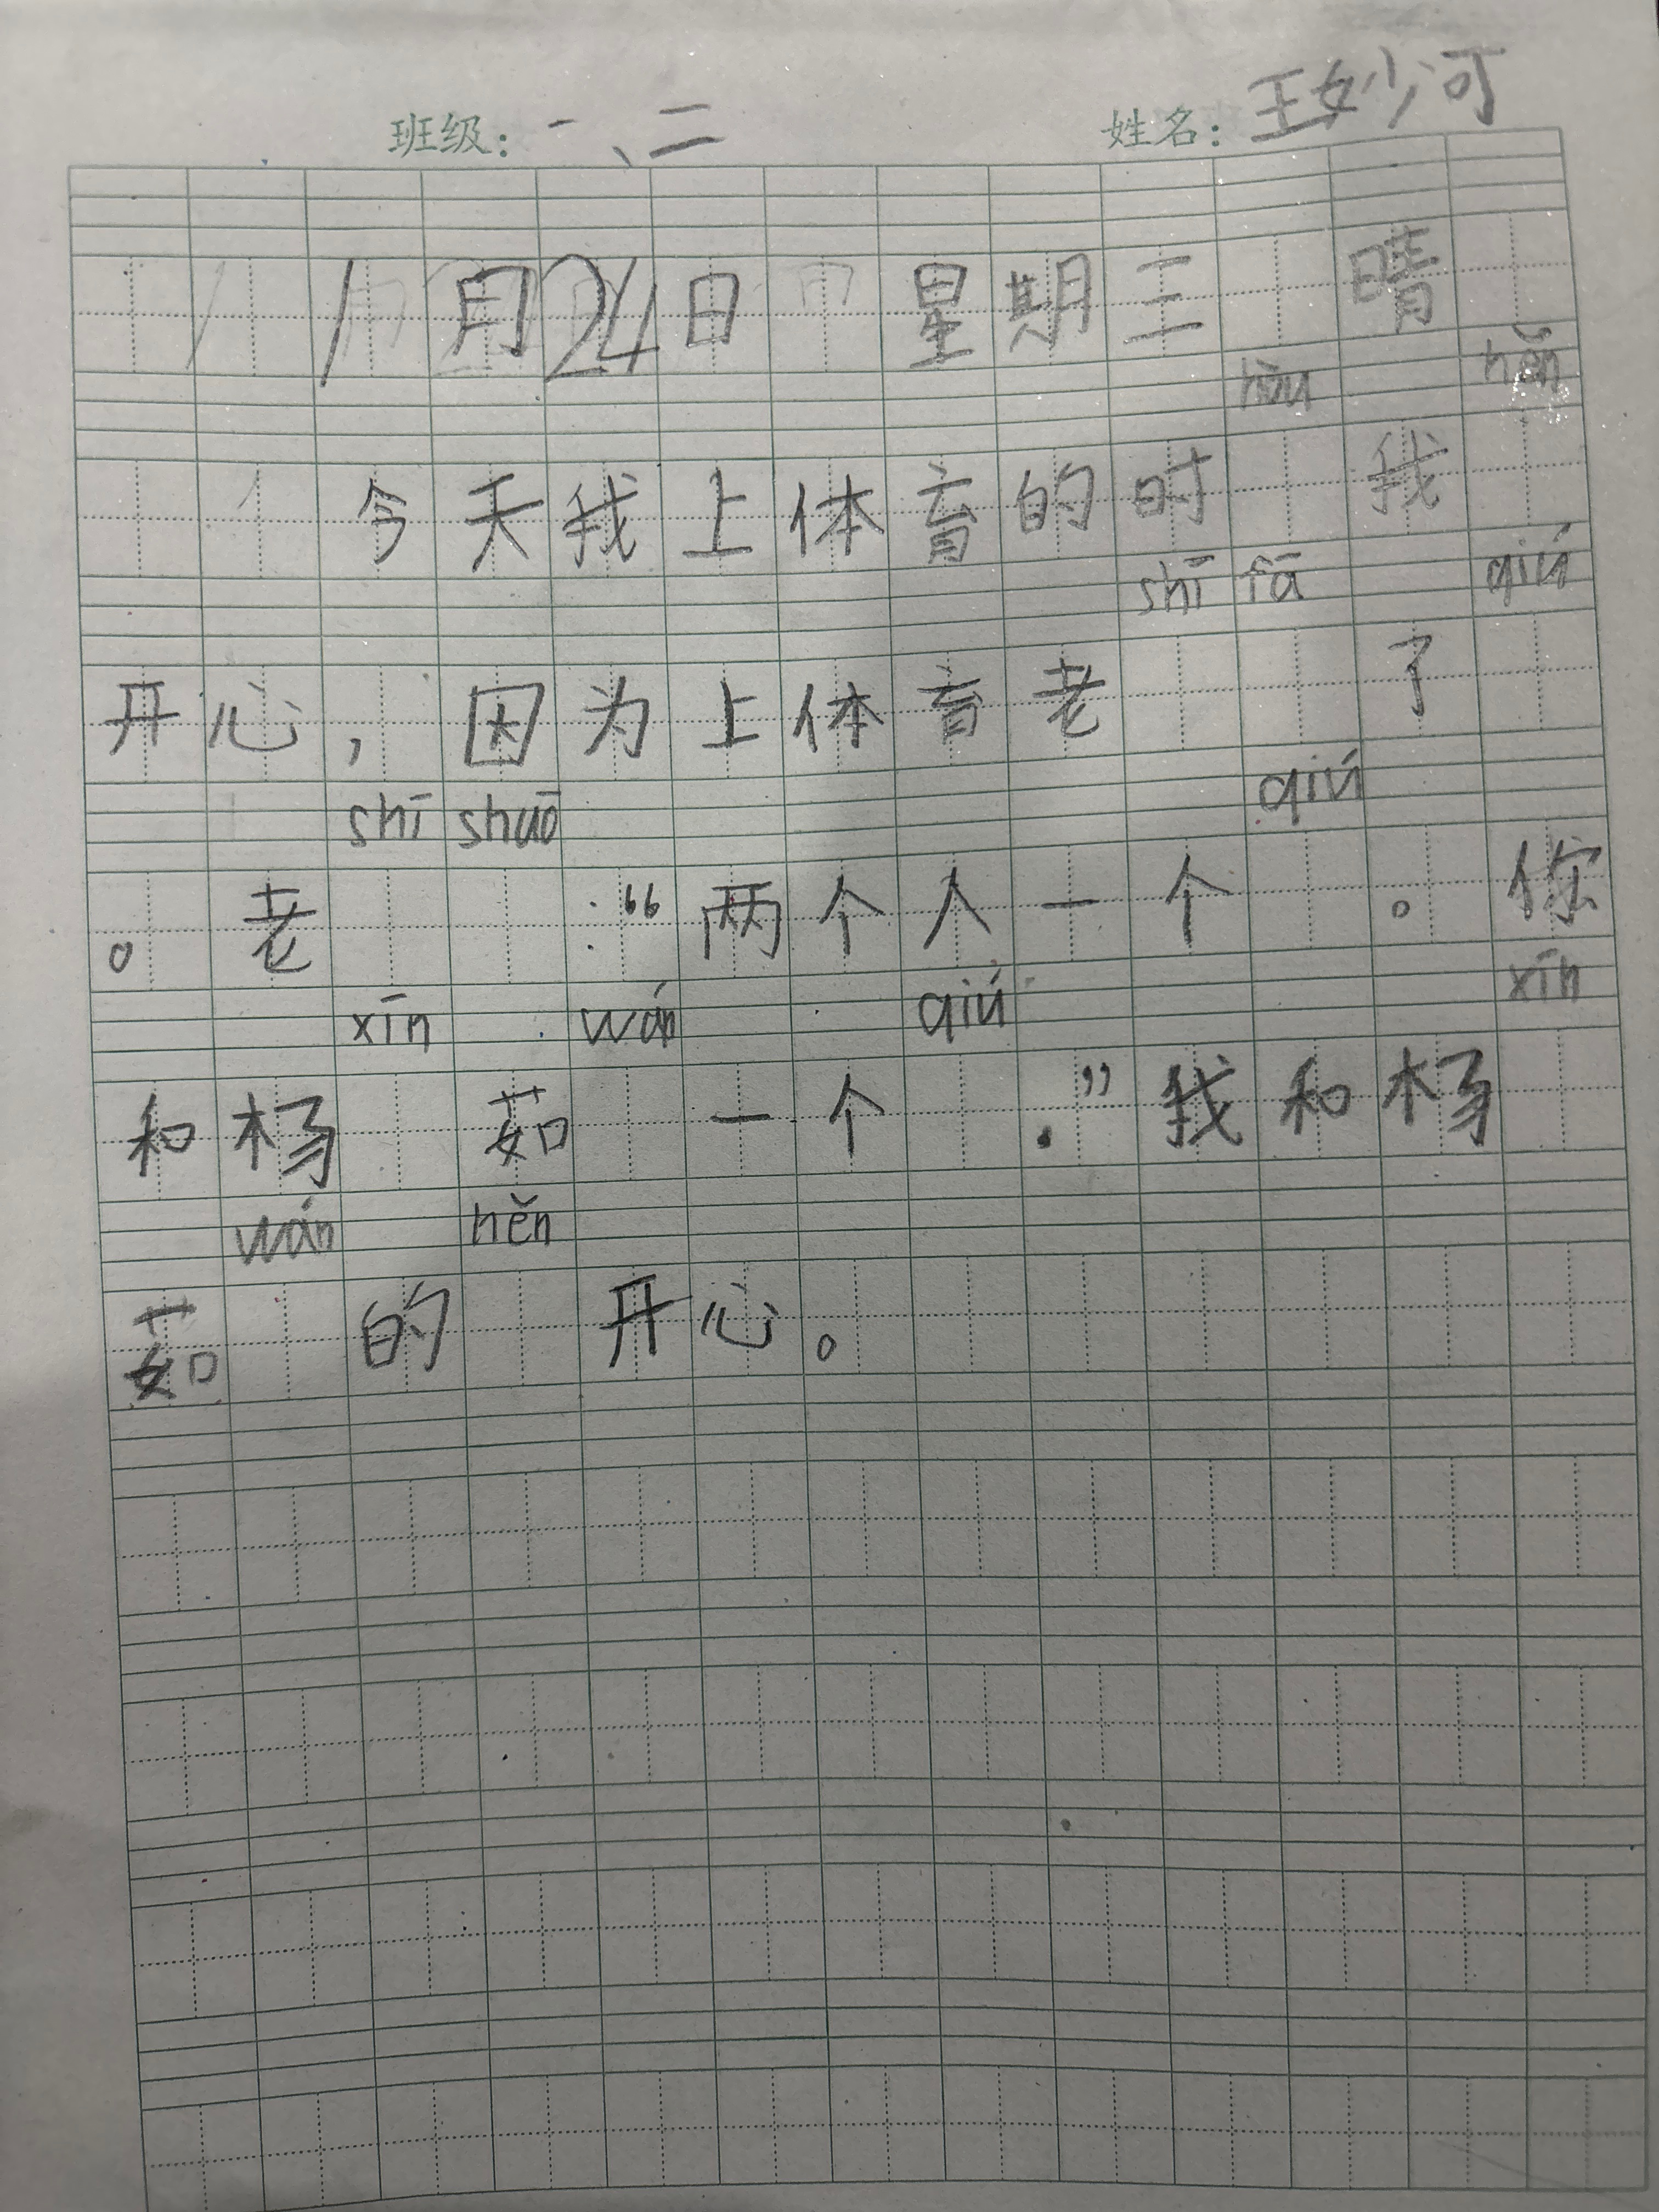 班级：一、二 姓名：王妙可
1月24日 星期三 晴
hòu hěn
今天我上体育的时 我
shī fā qiú
开心，因为上体育老 了
shī shuō qiú
。老 ：“两个人一个 。你
xīn wán qiú xīn
和杨 茹 一个 .”我和杨
wán hěn
茹 的 开心。